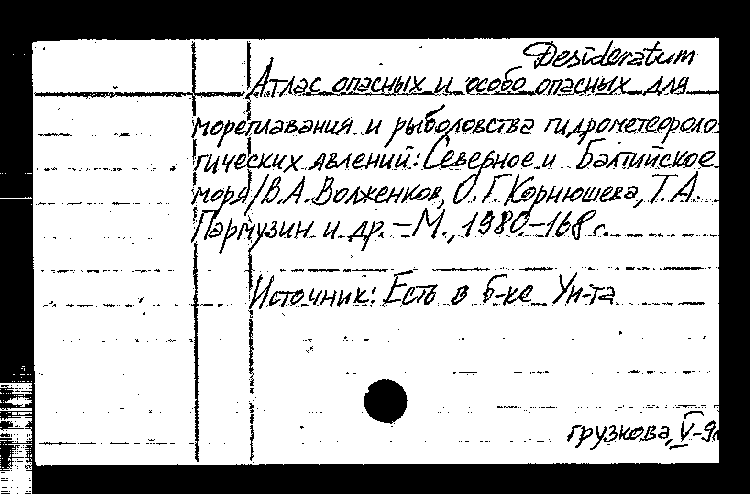 Desideratum
Атлас опасных и особо опасных для
мореплавания и рыболовства гидрометеороло-
гических явлений: Северное и Балтийское
моря / В.А. Волженков, О.Г. Корнюшева, Т.А.
Пармузин и др. – М., 1980. – 168 с.
Источник: Есть в б-ке Ун-та
грузкова, V-91